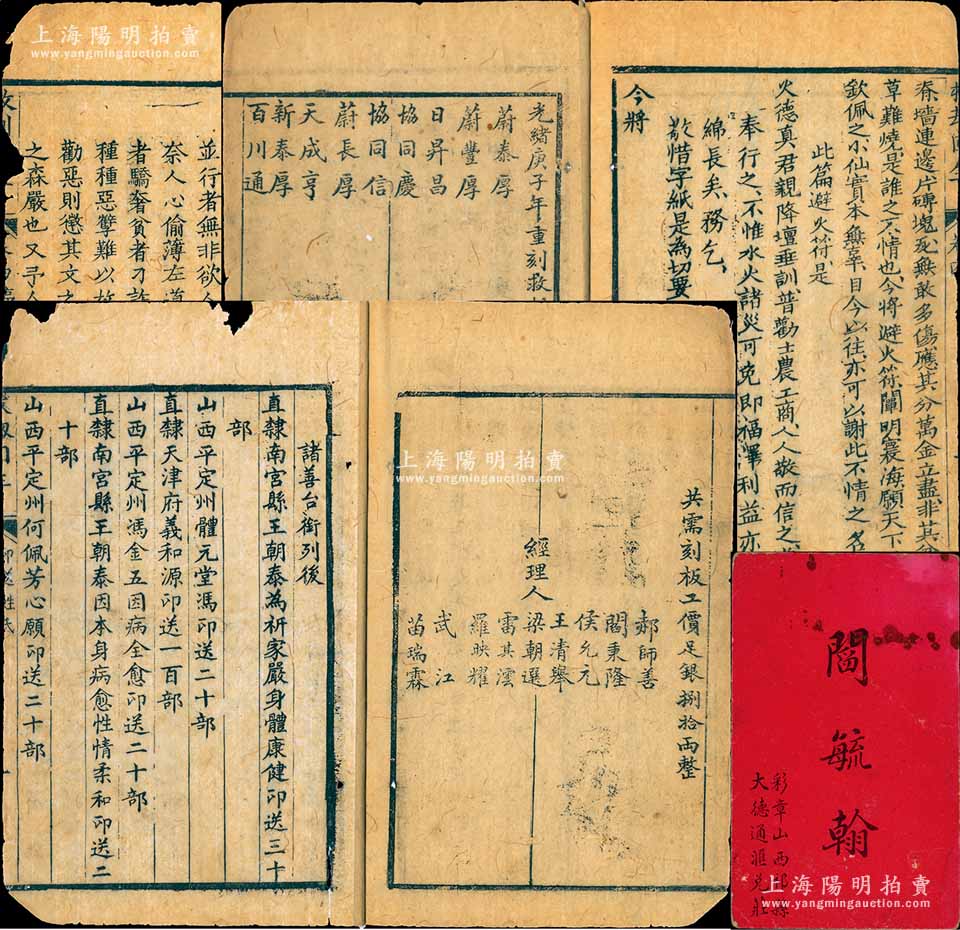 上海陽明拍賣
www.yangmingauction.com
並行者無非欲人
奈人心偷薄左道
者驕奢貧者刁詐
種種惡孽難以枚
勸惡則懲其文之
之森嚴也又予人
光緒庚子年重刻救
蔚泰厚
蔚豐厚
日昇昌
協同慶
協同信
蔚長厚
天成亨
新泰厚
百川通
上海陽明拍賣
www.yangmingauction.com
脊墻連邊片磚塊瓦無敢多傷應其分萬金立盡非其
草難燒是誰之不情也今將避火符闡明寰海願天下
欽佩之小仙實本無辜自今以往亦可以謝此不情之名
此篇避火符是
火德真君親降壇垂訓普勸士農工商人人敬而信之
奉行之不惟水火諸災可免即福澤利益亦
綿長矣務乞
敬惜字紙是為切要
今將
共需刻板工價足銀捌拾兩整
經理人
郝師善
閻秉隆
侯允元
王清舉
梁朝選
雷其澐
羅映耀
武江
苗瑞霖
上海陽明拍賣
www.yangmingauction.com
諸善台銜列後
直隸南宮縣王朝泰為祈家嚴身體康健印送三十
部
山西平定州體元堂馮印送二十部
直隸天津府義和源印送一百部
山西平定州馮金五因病全愈印送二十部
直隸南宮縣王朝泰因本身病愈性情柔和印送二
十部
山西平定州何佩芳心願印送二十部
閻毓翰
彩章山西祁縣
大德通滙兌莊
上海陽明拍賣
www.yangmingauction.com